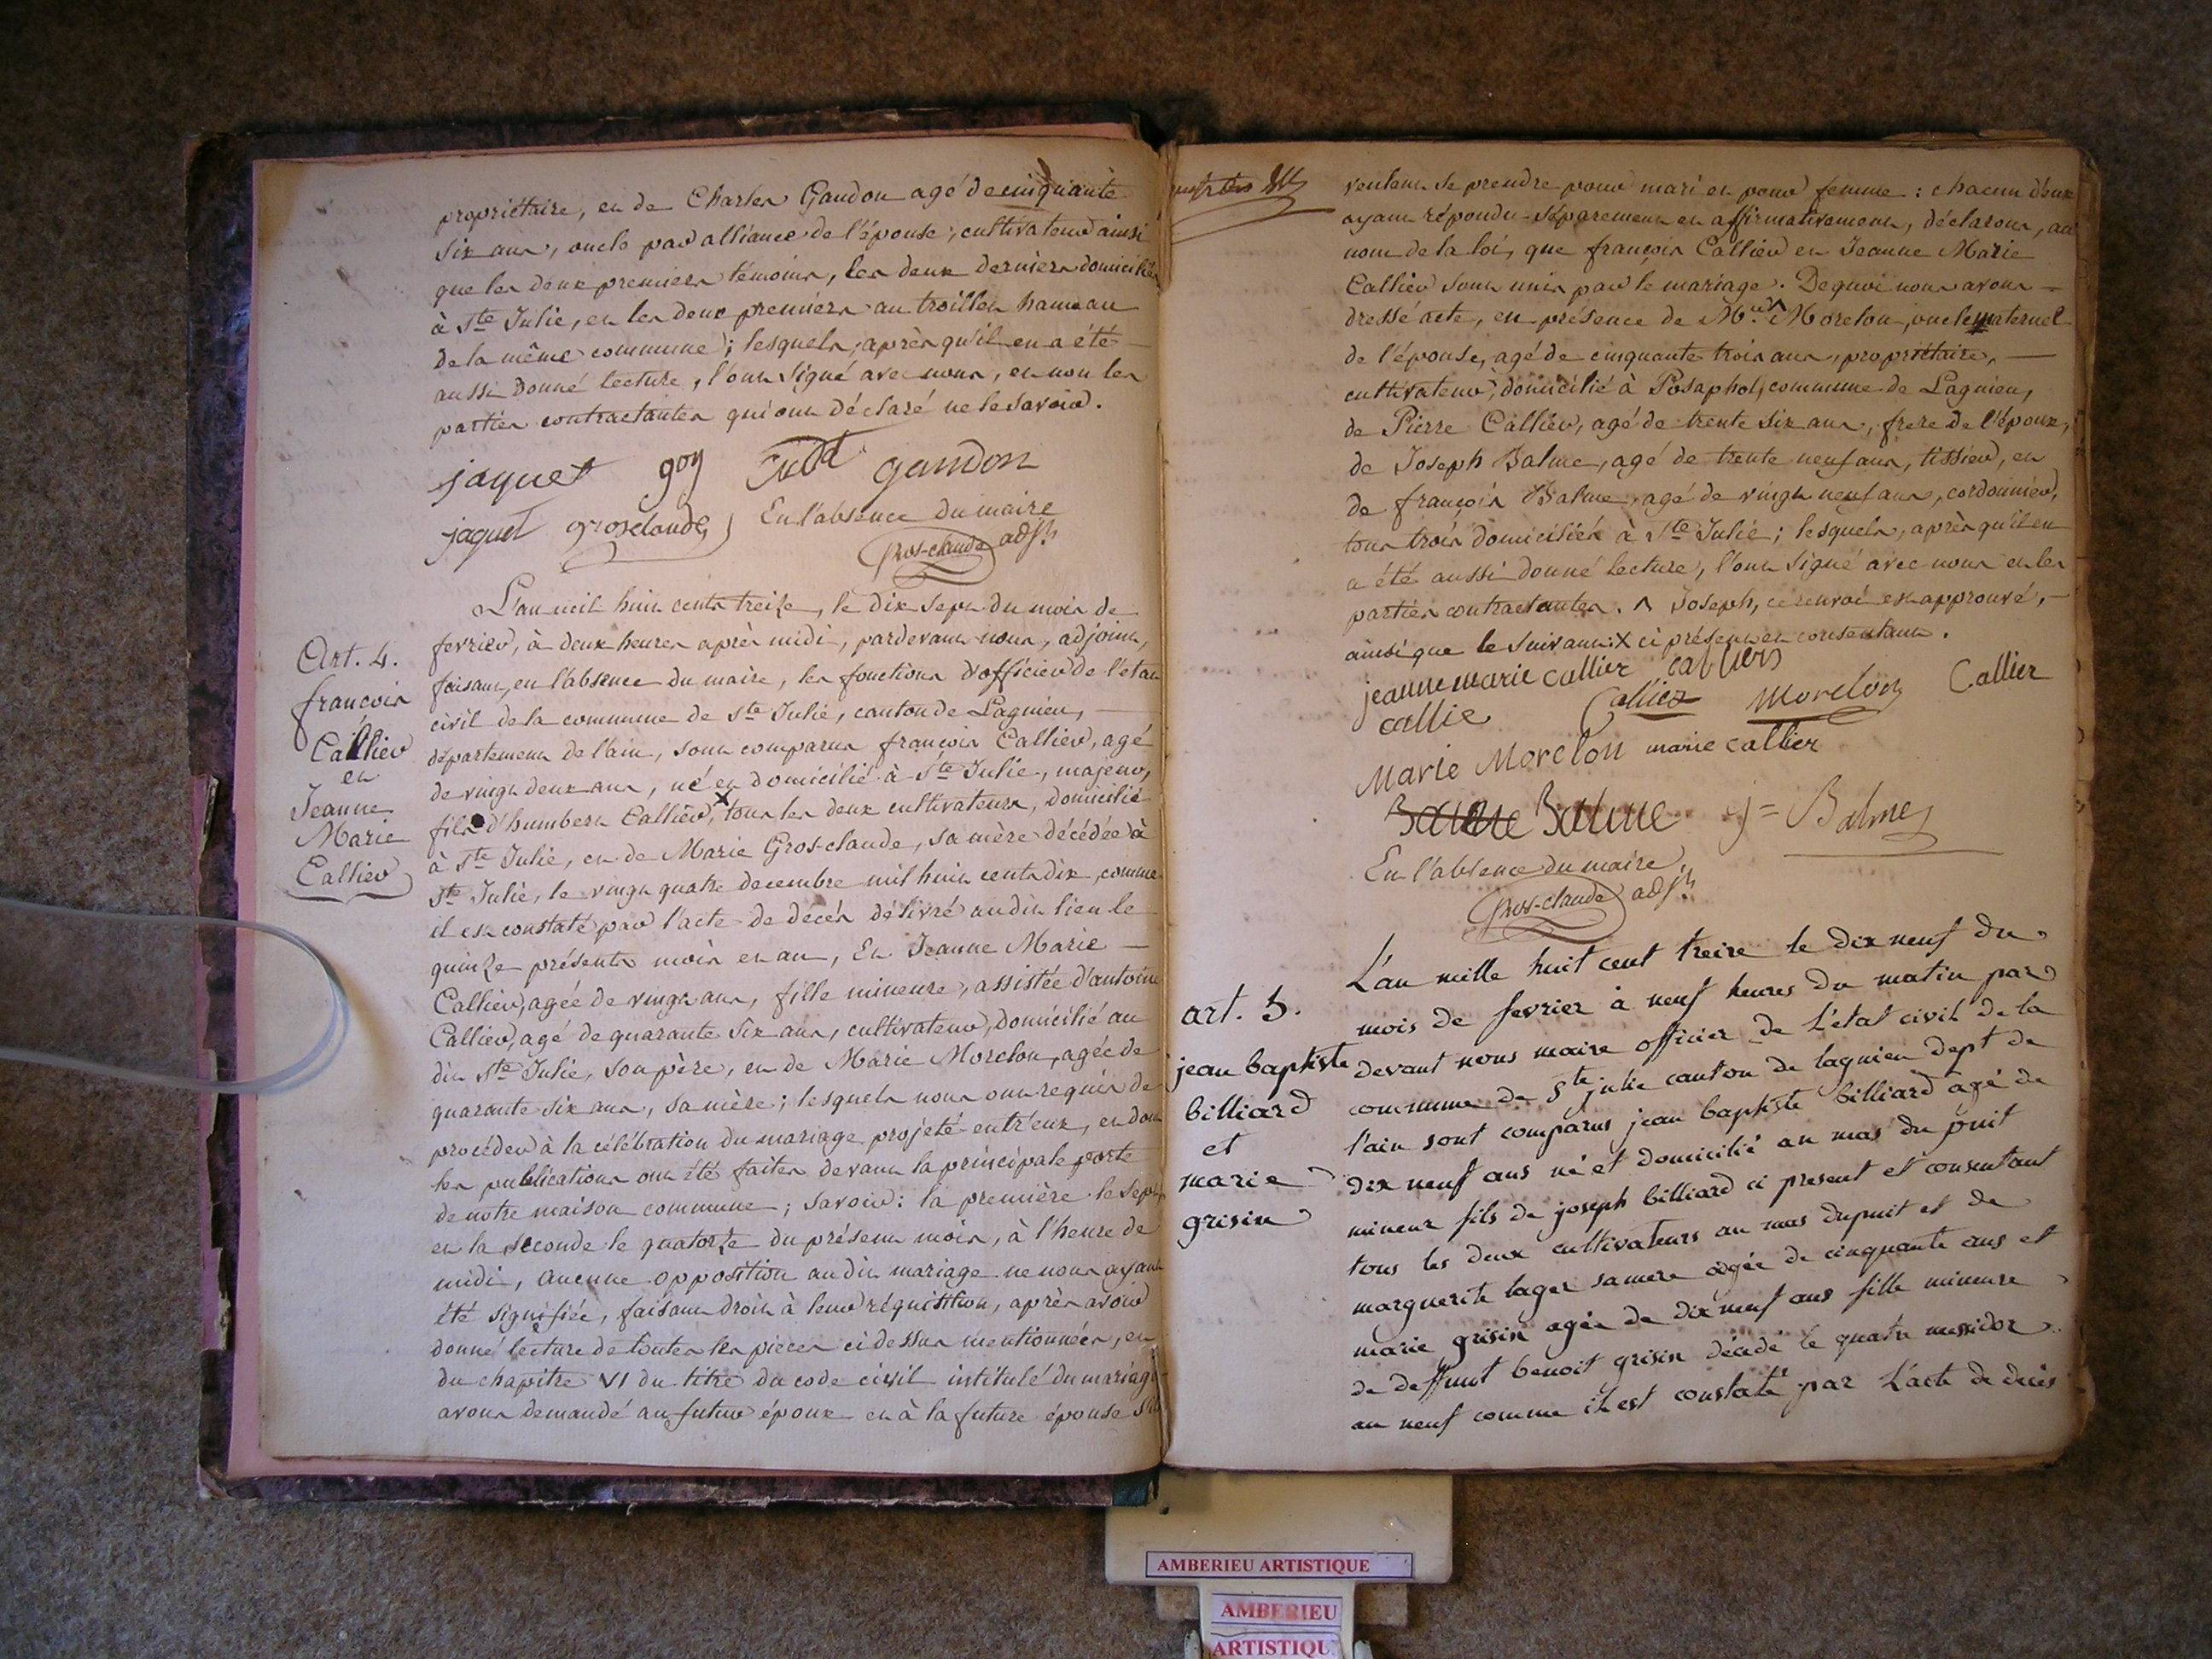 propriétaire, et de Charles Gandon agé de cinquante
six ans, oncle par alliance de l'épouse, cultivateurs ainsi
que les deux premiers témoins, les deux derniers domiciliés
à Ste Julie, et les deux premiers au trollier hameau
de la même commune; lesquels, après qu'il en a été
aussi donné lecture, l'ont signé avec nous, et non les
parties contractantes qui ont déclaré ne le savoir.
jaquet goy gandon
jaquet grosclaude En l'absence du maire
Gros-claude adjt
L'an mil huit cents treize, le dix sept du mois de
fevrier, à deux heures après midi, pardevant nous, adjoint,
faisant, en l'absence du maire, les fonctions d'officier de l'etat
civil de la commune de Ste Julie, canton de Lagnieu,
département de l'ain, sont comparus françois Callier, agé
de vingt deux ans, né et domicilié à Ste Julie, majeur,
fils d'humbert Callier, X tous les deux cultivateurs, domiciliés
à Ste Julie, et de Marie Gros-claude, sa mère décédée à
Ste Julie, le vingt quatre decembre mil huit cents dix, comme
il est constaté par l'acte de décès délivré audit lieu le
quinze présents mois et an, Et Jeanne Marie
Callier, agée de vingt ans, fille mineure, assistée d'antoine
Callier, agé de quarante six ans, cultivateur, domicilié au
dit Ste Julie, son père, et de Marie Morelon, agée de
quarante six ans, sa mère; lesquels nous ont requis de
procéder à la célébration du mariage projeté entr'eux, et dont
les publications ont été faites devant la principale porte
de notre maison commune; savoir: la première le sept
et la seconde le quatorze du présent mois, à l'heure de
midi, aucune opposition audit mariage ne nous ayant
été signifiée, faisant droit à leur réquisition, après avoir
donné lecture de toutes les pièces ci dessus mentionnées, et
du chapitre VI du titre du code civil intitulé du mariage
avons demandé au futur époux et à la future épouse s'ils
Art. 4.
françois
Callier
et
Jeanne
Marie
Callier
veulent se prendre pour mari et pour femme: chacun d'eux
ayant répondu séparement et affirmativement, déclarons, au
nom de la loi, que françois Callier et Jeanne Marie
Callier sont unis par le mariage. De quoi nous avons
dressé acte, en présence de Morelon, oncle maternel
de l'épouse, agé de cinquante trois ans, propriétaire,
cultivateur, domicilié à Posaphol, commune de Lagnieu,
de Pierre Callier, agé de trente six ans, frere de l'époux,
de Joseph Balme, agé de trente neuf ans, tissier, et
de françois Balme, agé de vingt neuf ans, cordonnier,
tous trois domiciliés à Ste Julie; lesquels, après qu'il en
a été aussi donné lecture, l'ont signé avec nous et les
parties contractantes. ^ Joseph, ce renvoi est approuvé,
ainsi que le suivant: X ci présent et consentant.
jeanne marie callier
callie Callier Morelon Callier
Marie Morelon marie callier
Balme Balme j = Balme
En l'absence du maire,
Gros-claude adjt
L'an mille huit cent treize le dix neuf du
mois de fevrier à neuf heures du matin par
devant nous maire officier de L'etat civil de la
commune de Ste julie canton de lagnieu dept de
l'ain sont comparus jean baptiste billiard agé de
dix neuf ans né et domicilié au mas du puit
mineur fils de joseph billiard ci present et consentant
tous les deux cultivateurs au mas dupuit et de
marguerite lager sa mere agée de cinquante ans et
marie grisin agée de dix neuf ans fille mineure
de deffunt benoit grisin décédé le quatre messidor
an neuf comme il est constaté par L'acte de deces
art. 5.
jean baptiste
billiard
et
marie
grisin
AMBERIEU ARTISTIQUE
AMBERIEU
ARTISTIQU